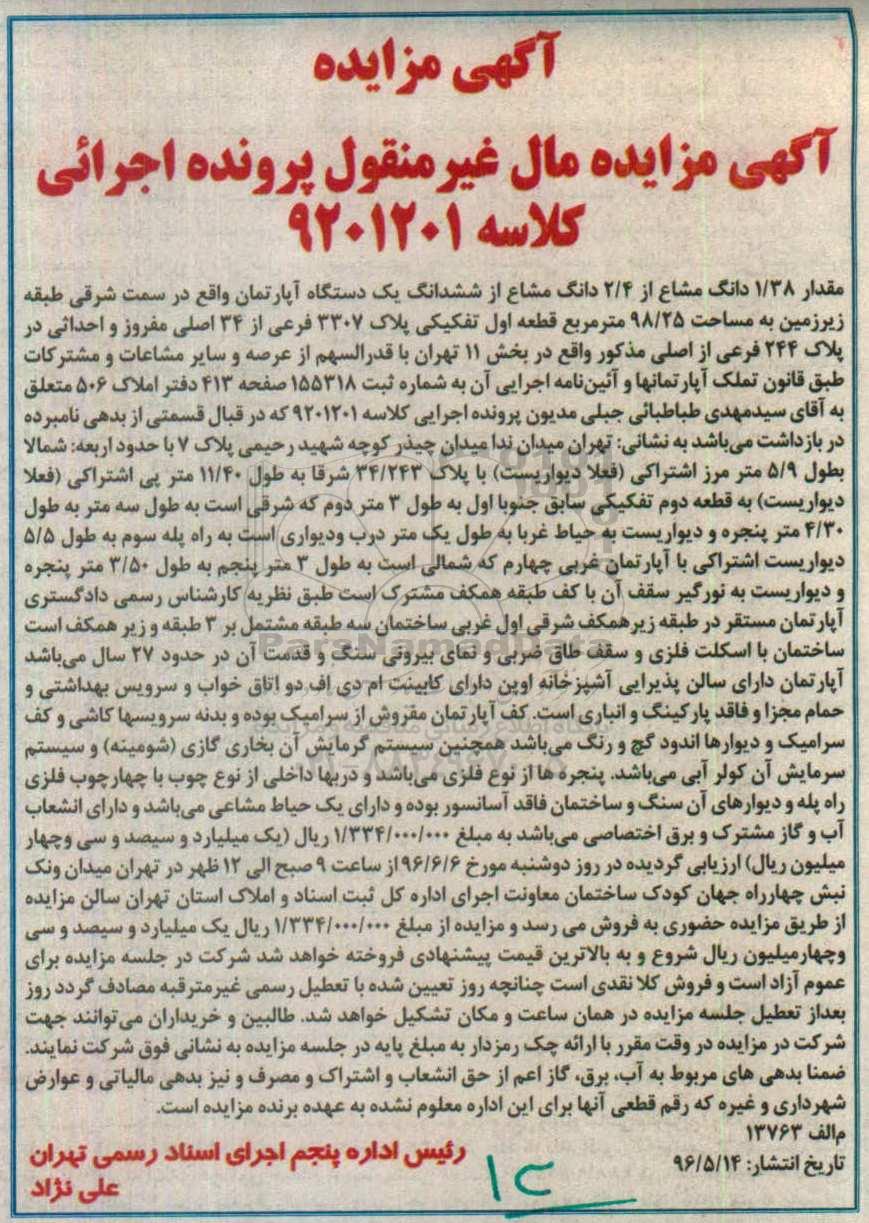 آگهی مزایده
آگهی مزایده مال غیرمنقول پرونده اجرائی
کلاسه ۹۲۰۱۲۰۱
مقدار ۱/۳۸ دانگ مشاع از ۲/۴ دانگ مشاع از ششدانگ یک دستگاه آپارتمان واقع در سمت شرقی طبقه
زیرزمین به مساحت ۹۸/۲۵ مترمربع قطعه اول تفکیکی پلاک ۳۳۰۷ فرعی از ۳۴ اصلی مفروز و احداثی در
پلاک ۲۴۴ فرعی از اصلی مذکور واقع در بخش ۱۱ تهران با قدرالسهم از عرصه و سایر مشاعات و مشترکات
طبق قانون تملک آپارتمانها و آئین‌نامه اجرایی آن به شماره ثبت ۱۵۵۳۱۸ صفحه ۴۱۳ دفتر املاک ۵۰۶ متعلق
به آقای سیدمهدی طباطبائی جبلی مدیون پرونده اجرایی کلاسه ۹۲۰۱۲۰۱ که در قبال قسمتی از بدهی نامبرده
در بازداشت می‌باشد به نشانی: تهران میدان ندا میدان چیذر کوچه شهید رحیمی پلاک ۷ با حدود اربعه: شمالا
بطول ۵/۹ متر مرز اشتراکی (فعلا دیواریست) با پلاک ۳۴/۲۴۳ شرقا به طول ۱۱/۴۰ متر پی اشتراکی (فعلا
دیواریست) به قطعه دوم تفکیکی سابق جنوبا اول به طول ۳ متر دوم که شرقی است به طول سه متر به طول
۴/۳۰ متر پنجره و دیواریست به حیاط غربا به طول یک متر درب ودیواری است به راه پله سوم به طول ۵/۵
دیواریست اشتراکی با آپارتمان غربی چهارم که شمالی است به طول ۳ متر پنجم به طول ۳/۵۰ متر پنجره
و دیواریست به نورگیر سقف آن با کف طبقه همکف مشترک است طبق نظریه کارشناس رسمی دادگستری
آپارتمان مستقر در طبقه زیرهمکف شرقی اول غربی ساختمان سه طبقه مشتمل بر ۳ طبقه و زیر همکف است
ساختمان با اسکلت فلزی و سقف طاق ضربی و نمای بیرونی سنگ و قدمت آن در حدود ۲۷ سال می‌باشد
آپارتمان دارای سالن پذیرایی آشپزخانه اوپن دارای کابینت ام دی اف دو اتاق خواب و سرویس بهداشتی و
حمام مجزا و فاقد پارکینگ و انباری است. کف آپارتمان مفروش از سرامیک بوده و بدنه سرویسها کاشی و کف
سرامیک و دیوارها اندود گچ و رنگ می‌باشد همچنین سیستم گرمایش آن بخاری گازی (شومینه) و سیستم
سرمایش آن کولر آبی می‌باشد. پنجره ها از نوع فلزی می‌باشد و دربها داخلی از نوع چوب با چهارچوب فلزی
راه پله و دیوارهای آن سنگ و ساختمان فاقد آسانسور بوده و دارای یک حیاط مشاعی می‌باشد و دارای انشعاب
آب و گاز مشترک و برق اختصاصی می‌باشد به مبلغ ۱/۳۳۴/۰۰۰/۰۰۰ ریال (یک میلیارد و سیصد و سی وچهار
میلیون ریال) ارزیابی گردیده در روز دوشنبه مورخ ۹۶/۶/۶ از ساعت ۹ صبح الی ۱۲ ظهر در تهران میدان ونک
نبش چهارراه جهان کودک ساختمان معاونت اجرای اداره کل ثبت اسناد و املاک استان تهران سالن مزایده
از طریق مزایده حضوری به فروش می رسد و مزایده از مبلغ ۱/۳۳۴/۰۰۰/۰۰۰ ریال یک میلیارد و سیصد و سی
وچهارمیلیون ریال شروع و به بالاترین قیمت پیشنهادی فروخته خواهد شد شرکت در جلسه مزایده برای
عموم آزاد است و فروش کلا نقدی است چنانچه روز تعیین شده با تعطیل رسمی غیرمترقبه مصادف گردد روز
بعداز تعطیل جلسه مزایده در همان ساعت و مکان تشکیل خواهد شد. طالبین و خریداران می‌توانند جهت
شرکت در مزایده در وقت مقرر با ارائه چک رمزدار به مبلغ پایه در جلسه مزایده به نشانی فوق شرکت نمایند.
ضمنا بدهی های مربوط به آب، برق، گاز اعم از حق انشعاب و اشتراک و مصرف و نیز بدهی مالیاتی و عوارض
شهرداری و غیره که رقم قطعی آنها برای این اداره معلوم نشده به عهده برنده مزایده است.
م‌الف ۱۳۷۶۳
تاریخ انتشار: ۹۶/۵/۱۴
رئیس اداره پنجم اجرای اسناد رسمی تهران
علی نژاد
ParsNamadData